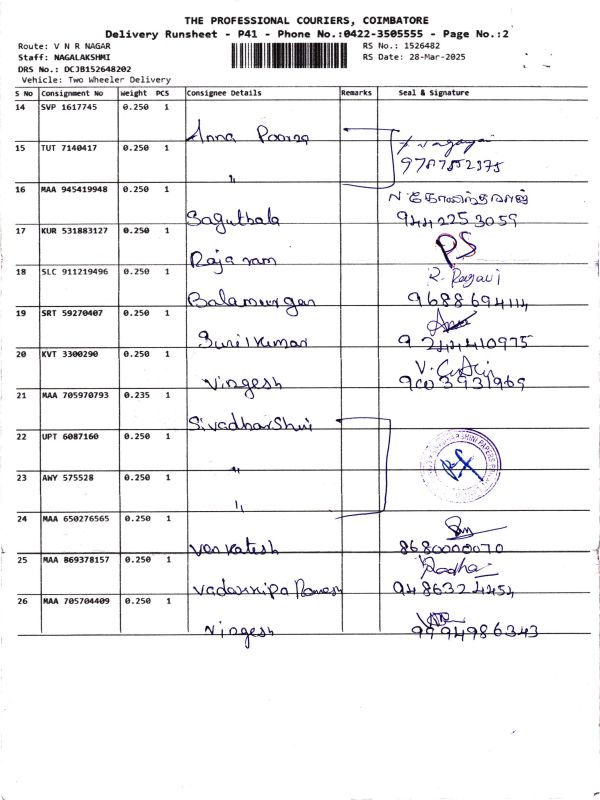 THE PROFESSIONAL COURIERS, COIMBATORE
Delivery Runsheet - P41 - Phone No.:0422-3505555 - Page No.:2
Route: V N R NAGAR
Staff: NAGALAKSHMI
DRS No.: DCJB152648202
Vehicle: Two Wheeler Delivery
RS No.: 1526482
RS Date: 28-Mar-2025
S No Consignment No Weight PCS Consignee Details Remarks Seal & Signature
14 SVP 1617745 0.250 1
Anna Poorna
15 TUT 7140417 0.250 1
9787852375
"
16 MAA 945419948 0.250 1
Sagutbala 9442253059
17 KUR 531883127 0.250 1
Rajaram PS
18 SLC 911219496 0.250 1 R. Ragavi
Balamurgan 9688694114
19 SRT 59270407 0.250 1
Sunilkumar 9244410975
20 KVT 3300290 0.250 1
Virgesh 9003931969
21 MAA 705970793 0.235 1
Sivadharshni
22 UPT 6087160 0.250 1
"
23 AWY 575528 0.250 1
"
24 MAA 650276565 0.250 1
Venkatesh 8680000070
25 MAA 869378157 0.250 1 Radha
Vadakkipa Ramesh 9486324454
26 MAA 705704409 0.250 1
Virgesh 9994986343